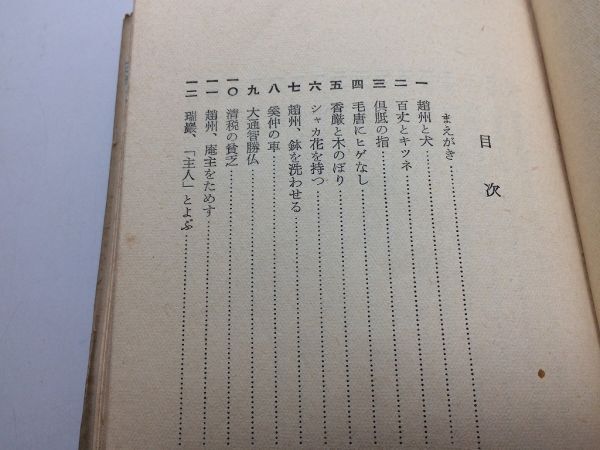 目次
まえがき
一 趙州と犬
二 百丈とキツネ
三 倶胝の指
四 毛唐にヒゲなし
五 香厳と木のぼり
六 シャカ花を持つ
七 趙州、鉢を洗わせる
八 奚仲の車
九 大通智勝仏
一〇 清税の貧乏
一一 趙州、庵主をためす
一二 瑞巖、「主人」とよぶ